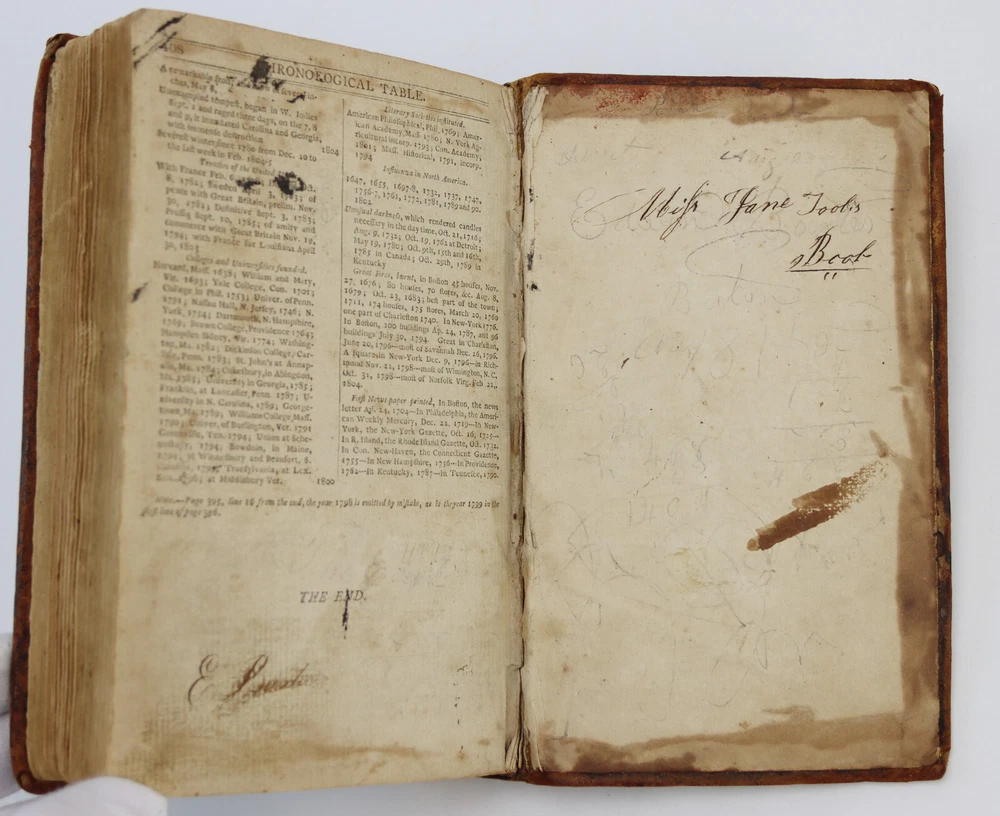 408
CHRONOLOGICAL TABLE.
A remarkable frost
ches, May 8,
Unexampled tempest, began in W. Indies
Sept. 1 and raged three days, on the 7, 8
and 9, it inundated Carolina and Georgia,
with immense destruction 1804
Severest winter since 1780 from Dec. 10 to
the last week in Feb. 1804-5
Treaties of the United
With France Feb. Oct.
8, 1782; Sweden April 3, 1783; of
peace with Great Britain, prelim. Nov.
30, 1782; Definitive Sept. 3, 1783;
Prussia Sept. 10, 1785; of amity and
commerce with Great Britain Nov. 19,
1794; with France for Louisiana April
30, 1803
Colleges and Universities founded.
Harvard, Mass. 1638; William and Mary,
Vir. 1693; Yale College, Con. 1701;
College in Phil. 1753; Univer. of Penn.
1791; Nassau Hall, N. Jersey, 1746; N.
York, 1754; Dartmouth, N. Hampshire,
1769; Brown College, Providence 1764;
Hampden Sidney, Vir. 1774; Washing-
ton, Ma. 1782; Dickinson College, Car-
lisle, Penn. 1783; St. John's at Annap-
olis, Ma. 1784; Cokesbury, in Abingdon,
Ma. 1785; University in Georgia, 1785;
Franklin, at Lancaster, Penn. 1787; U-
niversity in N. Carolina, 1789; George-
town, Ma. 1789; Williams College, Mass.
1790; Univer. of Burlington, Ver. 1791
Ten. 1794; Union at Sche-
nectady, 1794; Bowdoin, in Maine,
1794; at Winnsbury and Beaufort, S.
Carolina, 1795; Transylvania, at Lex.
at Middlebury Ver. 1800
Literary Societies instituted.
American Philosophical, Phil. 1769; Amer-
ican Academy, Mass. 1780; N. York Ag-
ricultural incorp. 1793; Con. Academy,
1801; Mass. Historical, 1791, incorp.
1794
Influenza in North America.
1647, 1655, 1697-8, 1732, 1737, 1747,
1756-7, 1761, 1772, 1781, 1789 and 90.
1802
Unusual darkness, which rendered candles
necessary in the day time, Oct. 21, 1716;
Aug. 9, 1732; Oct. 19, 1762 at Detroit;
May 19, 1780; Oct. 9th, 15th and 16th,
1785 in Canada; Oct. 29th, 1789 in
Kentucky
Great Fires, burnt, in Boston 45 houses, Nov.
27, 1676; 80 houses, 70 stores, &c. Aug. 8,
1679; Oct. 23, 1683; best part of the town;
1711, 174 houses, 175 stores, March 20, 1760
one part of Charleston 1740. In New-York 1776.
In Boston, 100 buildings Ap. 24, 1787, and 96
buildings July 30, 1794. Great in Charleston,
June 20, 1796—most of Savannah Dec. 26, 1796.
A Square in New-York Dec. 9, 1796—in Rich-
mond Nov. 22, 1798—most of Wilmington, N.C.
Oct. 31, 1798—most of Norfolk Virg. Feb 21,
1804.
First News paper printed, In Boston, the news
letter Apl. 24, 1704—In Philadelphia, the Ameri-
can Weekly Mercury, Dec. 22, 1719—In New-
York, the New-York Gazette, Oct. 16, 1725—
In R. Island, the Rhode Island Gazette, Oct. 1732.
In Con. New-Haven, the Connecticut Gazette,
1755—In New Hampshire, 1756—In Providence,
1762—In Kentucky, 1787—In Tennessee, 1790.
Note.—Page 395, line 16 from the end, the year 1798 is omitted by mistake, as is the year 1799 in the
first line of page 396.
THE END.
E.
Miss Jane Tools
Book